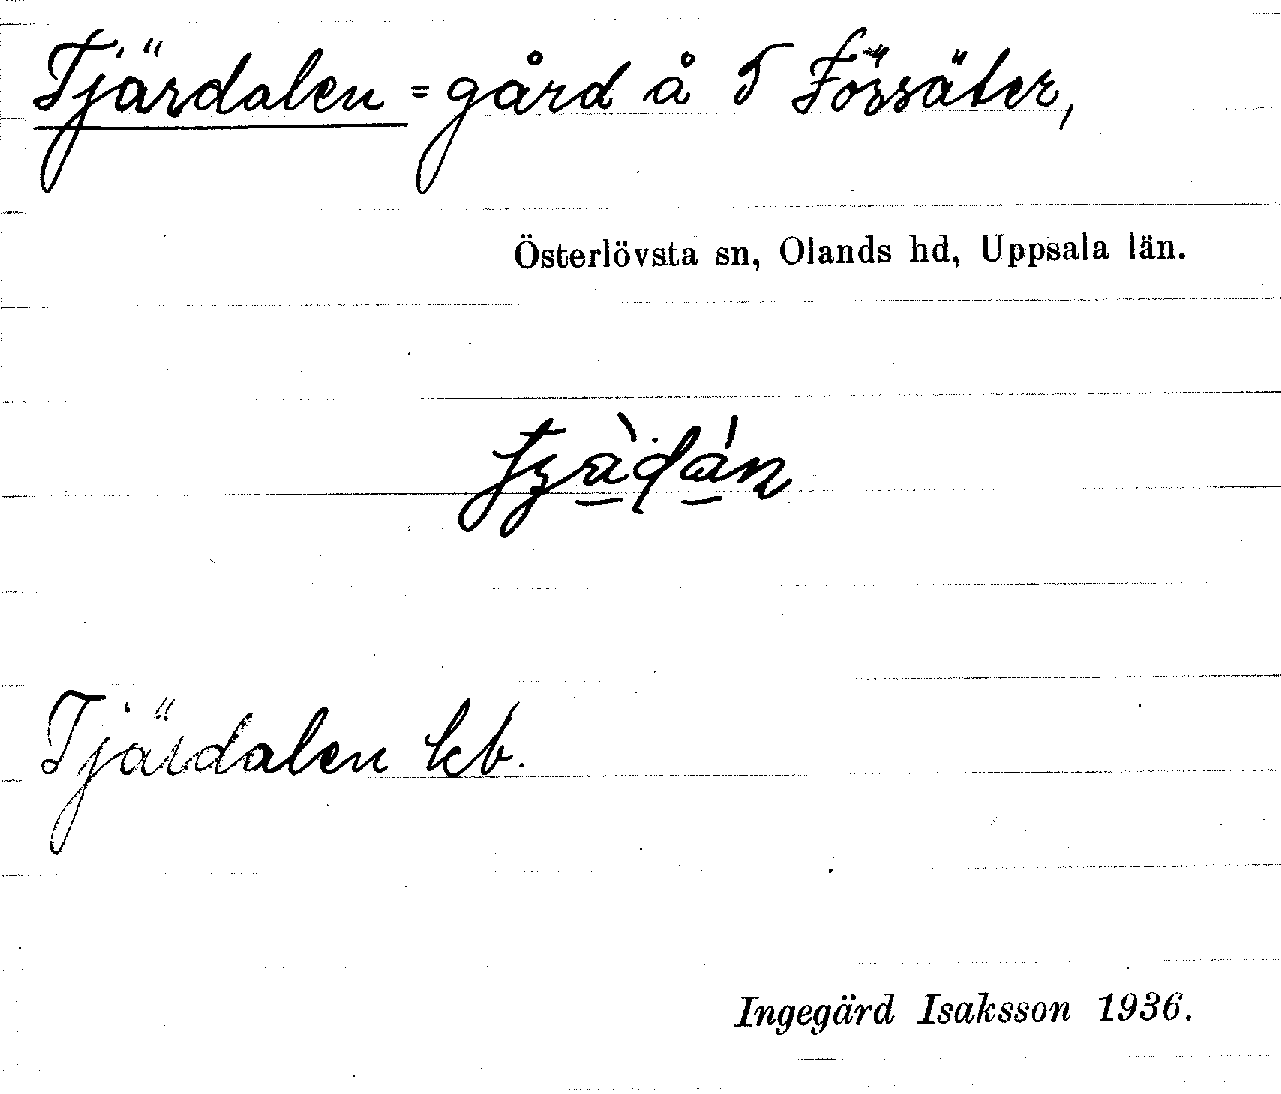 Tjärdalen = gård å 5 Försäter,
Österlövsta sn, Olands hd, Uppsala län.
Tjärdalen kb.
Ingegärd Isaksson 1936.